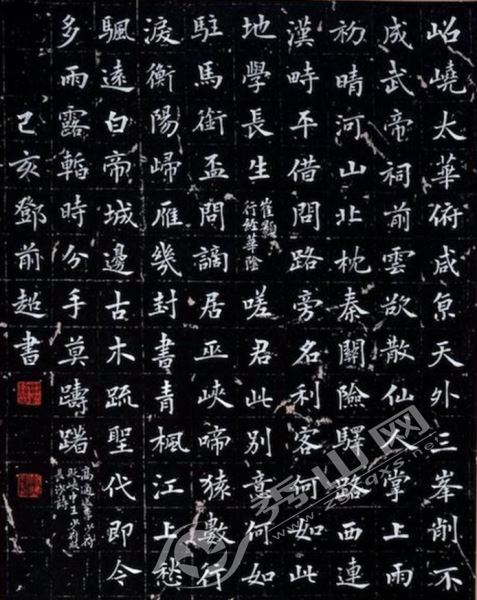 岹嶢太華俯咸京天外三峯削不
成武帝祠前雲欲散仙人掌上雨
初晴河山北枕秦關險驛路西連
漢時平借問路旁名利客何如此
地學長生
崔顥
行經華陰
嗟君此別意何如
駐馬銜盃問謫居巫峽啼猿數行
淚衡陽歸雁幾封書青楓江上愁
颿遠白帝城邊古木疏聖代即今
多雨露暫時分手莫躊躇
高適李少府
貶峽中王少府貶
長沙詩
己亥鄧前超書
秀山网